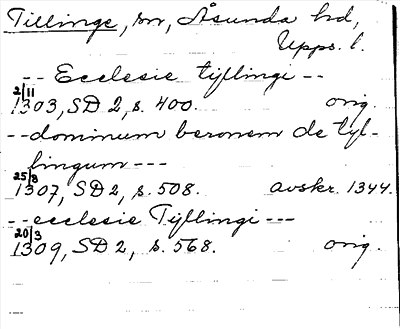 Tillinge, sn, Åsunda hd,
Upps. l.
-- Ecclesie tijllingi --
2/11
1303, SD 2, s. 400. orig.
-- dominum baronem de tyl-
lingum ---
25/8
1307, SD 2, s. 508. avskr. 1344.
-- ecclesie Tijllingi ---
20/3
1309, SD 2, s. 568. orig.